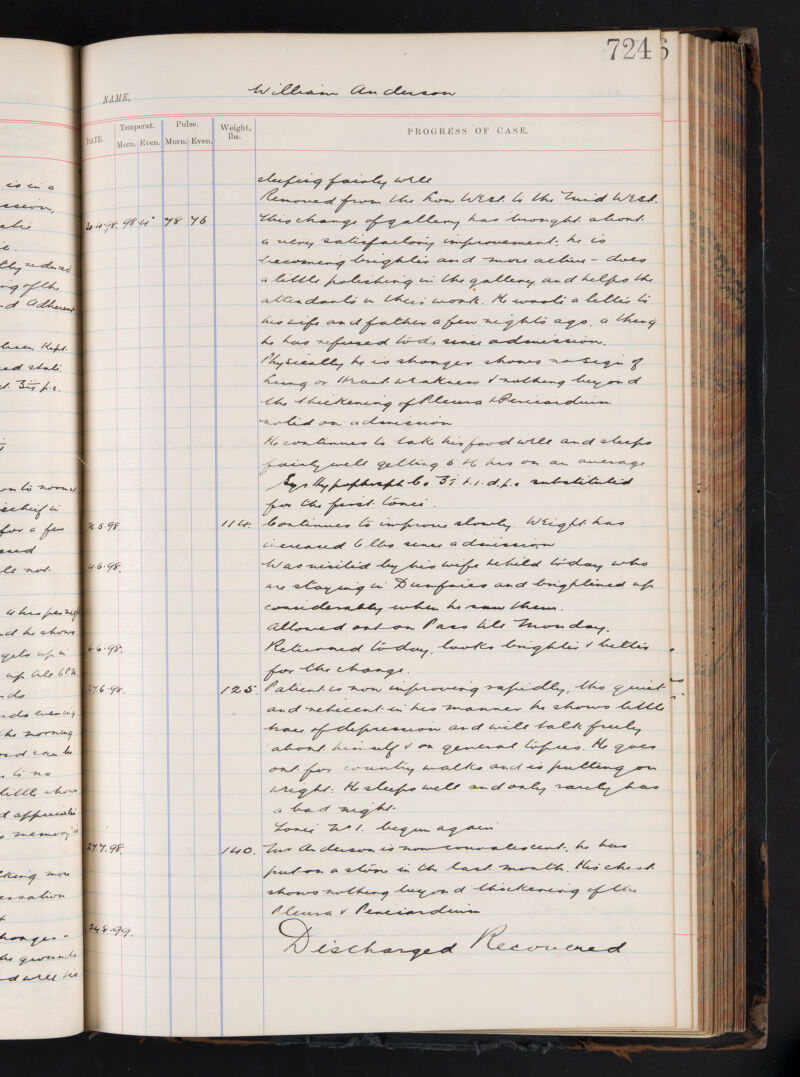 7246
NAME, William Anderson
DATE Temperat. Pulse. Weight, lbs. PROGRESS OF CASE.
Morn. Even. Morn. Even.
sleeping fairly well
Removed from the Low West to the Mid West.
4.98. 98.4° 78 76 This change of gallery has brought about
a very satisfactory improvement. he is
becoming brighter and more active - does
a little polishing in the gallery and helps the
attendants in their work. He wrote a letter to
his wife and father a few nights ago, a thing
he has refused to do since admission.
Physically he is stronger shows no sign of
Lung or Heart weakness & nothing beyond
the thickening of Pleura & Pericardium
noted on admission
He continues to take his food well and sleeps
fairly well getting 5 to 6 hrs on an average
Co t.i.d. p.c. substituted
for the first tonic.
5.98. 114. Continues to improve slowly. Weight has
increased 6 lbs since admission
4.6.98. Was visited by his wife & child today who
are staying in Dumfries and brightened up
considerably when he saw them.
Allowed out on Pass till Monday.
6.6.98. Returned today, looks brighter & better
for the change.
27.6.98. 125. Patient is now improving rapidly, tho quiet
and reticent in his manner he shows little
trace of depression and will talk freely
about himself & on general topics. He goes
out for country walks and is putting on
weight. He sleeps well and only rarely has
a bad night.
Tonic No 1. begun again
27.7.98. 140. Mr Anderson is now convalescent. he has
put on a stone in the last month. His chest
shows nothing beyond thickening of the
Pleura & Pericardium
24.8.99. Discharged Recovered